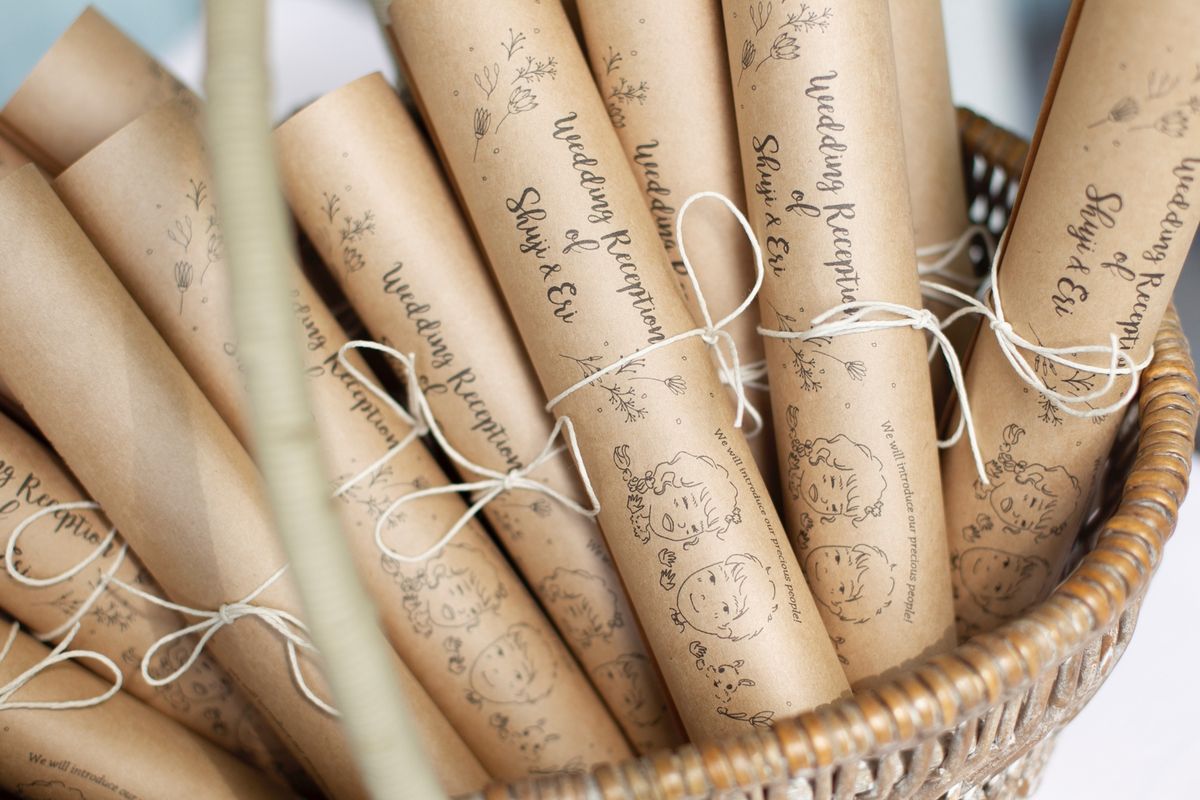 Wedding Reception
of
Shuji & Eri
We will introduce our precious people!
Wedding
Wedding Reception
of
Shuji & Eri
We will introduce our precious people!
Wedding Recepti
of
Shuji & Eri
Wedding Reception
of
Reception
Reception
We will introduce our